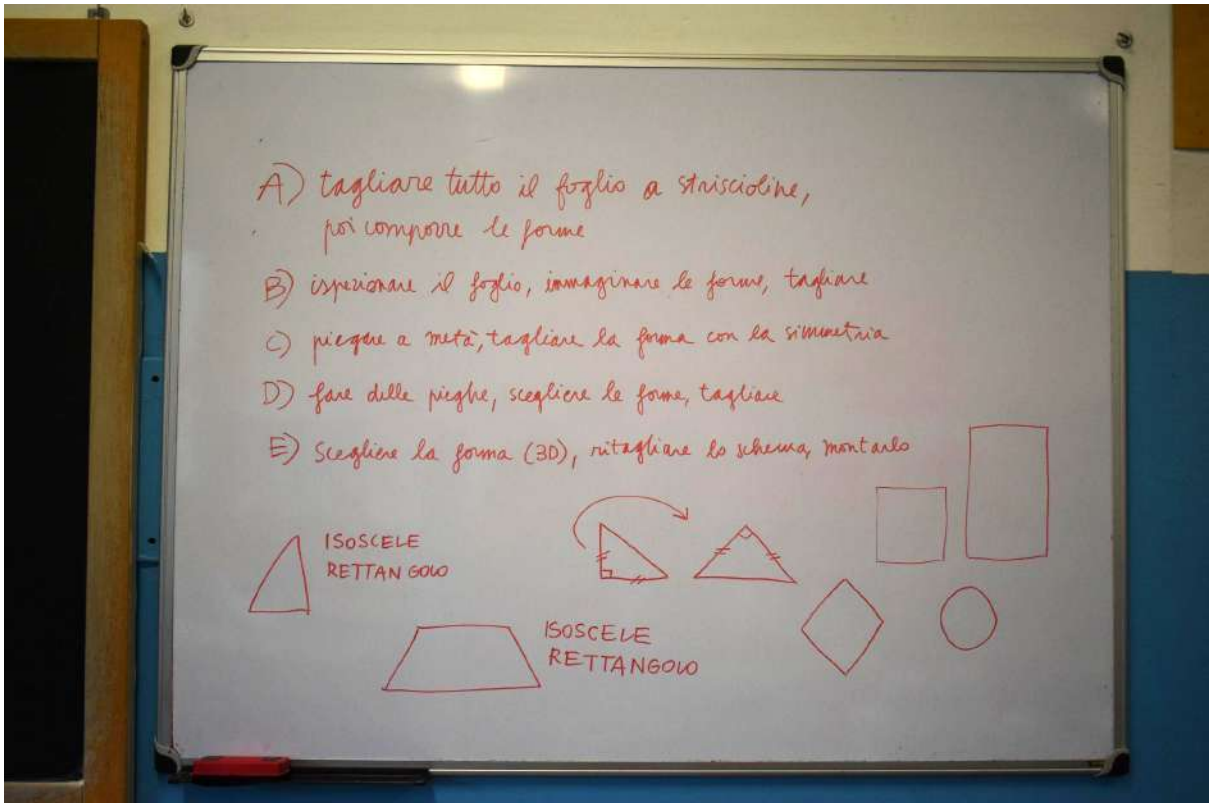 A) tagliare tutto il foglio a striscioline,
poi comporre le forme
B) ispezionare il foglio, immaginare le forme, tagliare
C) piegare a metà, tagliare la forma con la simmetria
D) fare delle pieghe, scegliere le forme, tagliare
E) Scegliere la forma (3D), ritagliare lo schema, montarlo
ISOSCELE
RETTANGOLO
ISOSCELE
RETTANGOLO